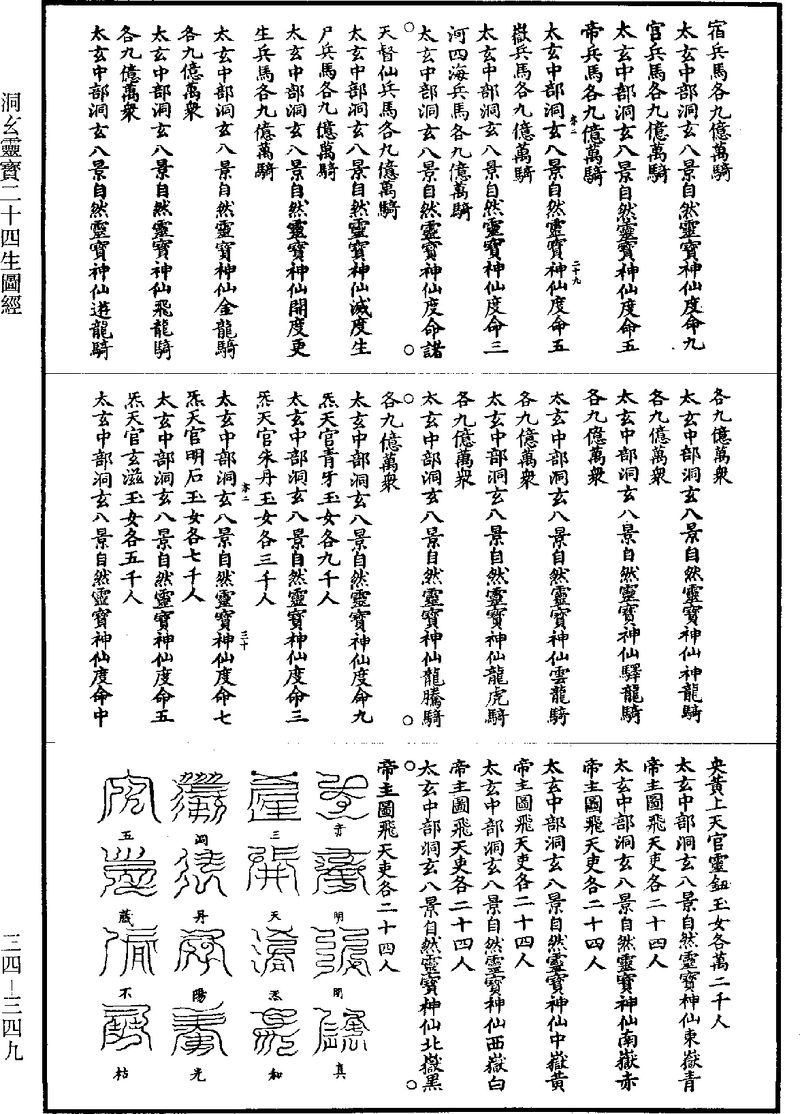 洞玄靈寶二十四生圖經
三四—三四九
宿兵馬各九億萬騎
太玄中部洞玄八景自然靈寶神仙度命九
官兵馬各九億萬騎
太玄中部洞玄八景自然靈寶神仙度命五
帝兵馬各九億萬騎
太玄中部洞玄八景自然靈寶神仙度命五
亦二
二十九
嶽兵馬各九億萬騎
太玄中部洞玄八景自然靈寶神仙度命三
河四海兵馬各九億萬騎
太玄中部洞玄八景自然靈寶神仙度命諸
天督仙兵馬各九億萬騎
太玄中部洞玄八景自然靈寶神仙滅度生
尸兵馬各九億萬騎
太玄中部洞玄八景自然靈寶神仙開度更
生兵馬各九億萬騎
太玄中部洞玄八景自然靈寶神仙金龍騎
各九億萬衆
太玄中部洞玄八景自然靈寶神仙飛龍騎
各九億萬衆
太玄中部洞玄八景自然靈寶神仙遊龍騎
各九億萬衆
太玄中部洞玄八景自然靈寶神仙神龍騎
各九億萬衆
太玄中部洞玄八景自然靈寶神仙驛龍騎
各九億萬衆
太玄中部洞玄八景自然靈寶神仙雲龍騎
各九億萬衆
太玄中部洞玄八景自然靈寶神仙龍虎騎
各九億萬衆
太玄中部洞玄八景自然靈寶神仙龍騰騎
各九億萬衆
太玄中部洞玄八景自然靈寶神仙度命九
炁天官青牙玉女各九千人
太玄中部洞玄八景自然靈寶神仙度命三
炁天官朱丹玉女各三千人
太玄中部洞玄八景自然靈寶神仙度命七
亦二
三十
炁天官明石玉女各七千人
太玄中部洞玄八景自然靈寶神仙度命五
炁天官玄滋玉女各五千人
太玄中部洞玄八景自然靈寶神仙度命中
央黃上天官靈鈕玉女各萬二千人
太玄中部洞玄八景自然靈寶神仙東嶽青
帝主圖飛天吏各二十四人
太玄中部洞玄八景自然靈寶神仙南嶽赤
帝主圖飛天吏各二十四人
太玄中部洞玄八景自然靈寶神仙中嶽黃
帝主圖飛天吏各二十四人
太玄中部洞玄八景自然靈寶神仙西嶽白
帝主圖飛天吏各二十四人
太玄中部洞玄八景自然靈寶神仙北嶽黑
帝主圖飛天吏各二十四人
赤
明
開
真
三
天
合
和
洞
丹
陽
光
五
藏
不
枯